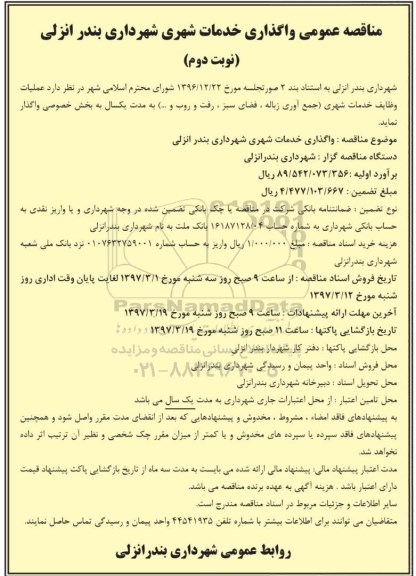 مناقصه عمومی واگذاری خدمات شهری شهرداری بندر انزلی
(نوبت دوم)
شهرداری بندر انزلی به استناد بند ۲ صورتجلسه مورخ ۱۳۹۶/۱۲/۲۲ شورای محترم اسلامی شهر در نظر دارد عملیات
وظایف خدمات شهری (جمع آوری زباله ، فضای سبز ، رفت و روب و ...) به مدت یکسال به بخش خصوصی واگذار
نماید.
موضوع مناقصه : واگذاری خدمات شهری شهرداری بندر انزلی
دستگاه مناقصه گزار : شهرداری بندرانزلی
برآورد اولیه :۸۹/۵۴۲/۰۷۳/۳۵۶ ریال
مبلغ تضمین : ۴/۴۷۷/۱۰۳/۶۶۷ ریال
نوع تضمین : ضمانتنامه بانکی شرکت در مناقصه یا چک بانکی تضمین شده در وجه شهرداری و یا واریز نقدی به
حساب بانکی شهرداری به شماره حساب ۱۶۱۸۷۱۲۸/۰۴ بانک ملت به نام شهرداری بندرانزلی
هزینه خرید اسناد مناقصه : مبلغ ۱/۰۰۰/۰۰۰ ریال واریز به حساب شماره ۰۱۰۷۶۳۲۷۵۹۰۰۱ نزد بانک ملی شعبه
شهرداری بندرانزلی
تاریخ فروش اسناد مناقصه : از ساعت ۹ صبح روز سه شنبه مورخ ۱۳۹۷/۳/۱ لغایت پایان وقت اداری روز
شنبه مورخ ۱۳۹۷/۳/۱۲
آخرین مهلت ارائه پیشنهادات : ساعت ۹ صبح روز شنبه مورخ ۱۳۹۷/۳/۱۹
تاریخ بازگشایی پاکتها : ساعت ۱۱ صبح روز شنبه مورخ ۱۳۹۷/۳/۱۹
محل بازگشایی پاکتها : دفتر کار شهردار بندرانزلی
محل فروش اسناد : واحد پیمان و رسیدگی شهرداری بندرانزلی
محل تحویل اسناد : دبیرخانه شهرداری بندرانزلی
محل تامین اعتبار : از محل اعتبارات جاری شهرداری به مدت یک سال می باشد
به پیشنهادهای فاقد امضاء ، مشروط ، مخدوش و پیشنهادهایی که بعد از انقضای مدت مقرر واصل شود و همچنین
پیشنهادهای فاقد سپرده یا سپرده های مخدوش و یا کمتر از میزان مقرر چک شخصی و نظیر آن ترتیب اثر داده
نخواهد شد.
مدت اعتبار پیشنهاد مالی: پیشنهاد مالی ارائه شده می بایست به مدت سه ماه از تاریخ بازگشایی پاکت پیشنهاد قیمت
دارای اعتبار باشد . هزینه آگهی به عهده برنده مناقصه می باشد.
سایر اطلاعات و جزئیات مربوط در اسناد مناقصه مندرج است.
متقاضیان می توانند برای اطلاعات بیشتر با شماره تلفن ۴۴۵۴۱۹۳۵ واحد پیمان و رسیدگی تماس حاصل نمایند.
روابط عمومی شهرداری بندرانزلی
ParsNamadData
۰۲۱-۸۸۳۴۹۶۷۰-۵